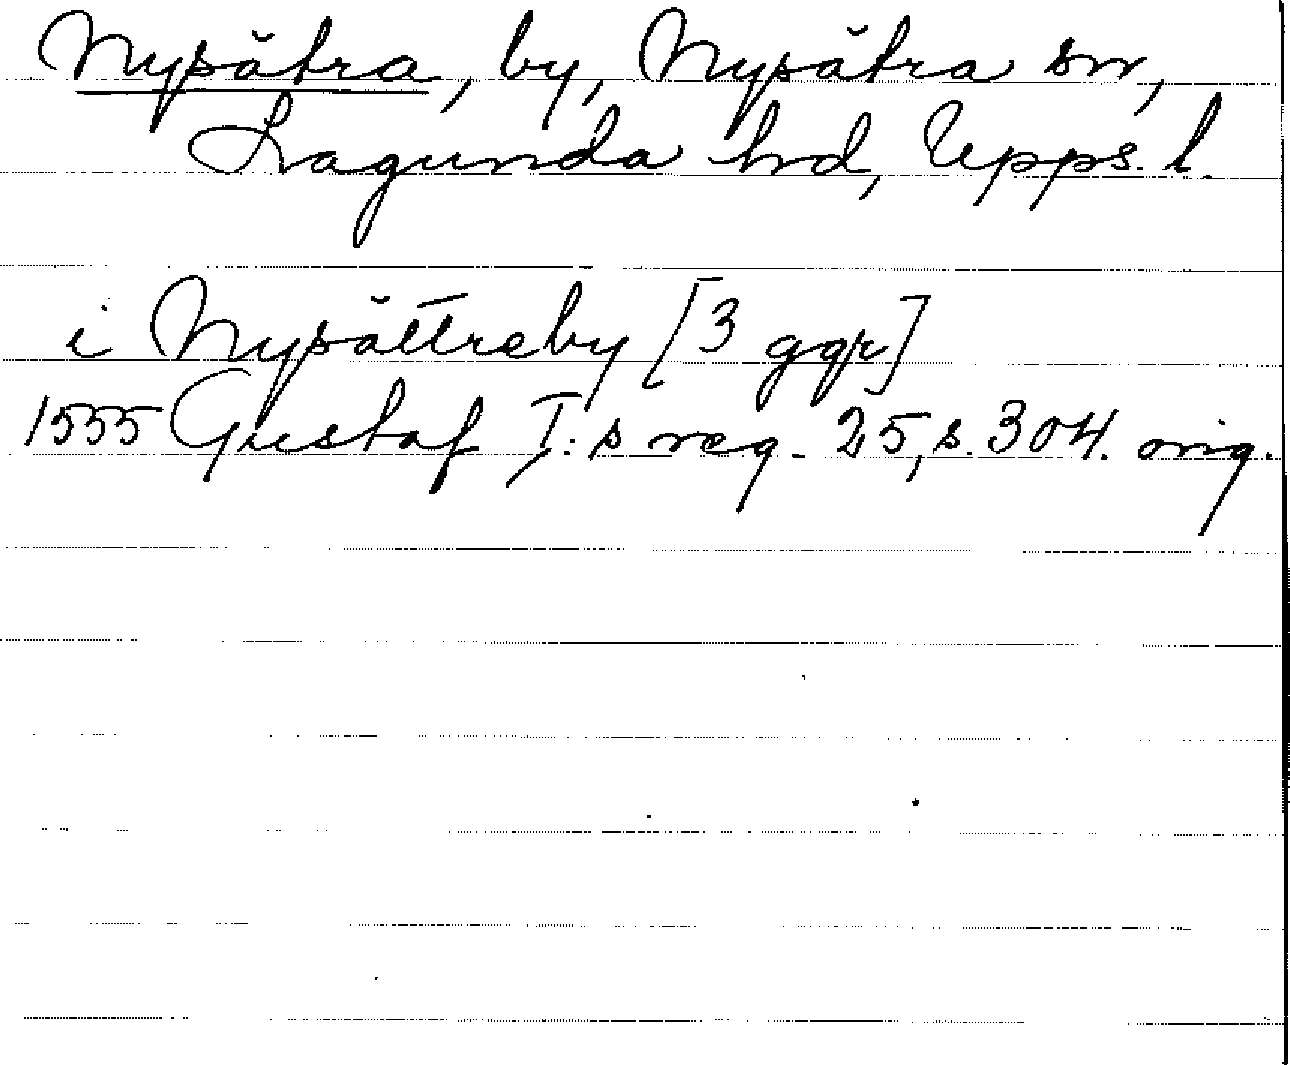 Nysätra, by, Nysätra sn,
Lagunda hd, Upps. l.
i Nysättreby [3 ggr]
1555 Gustaf I:s reg. 25, s. 304. orig.